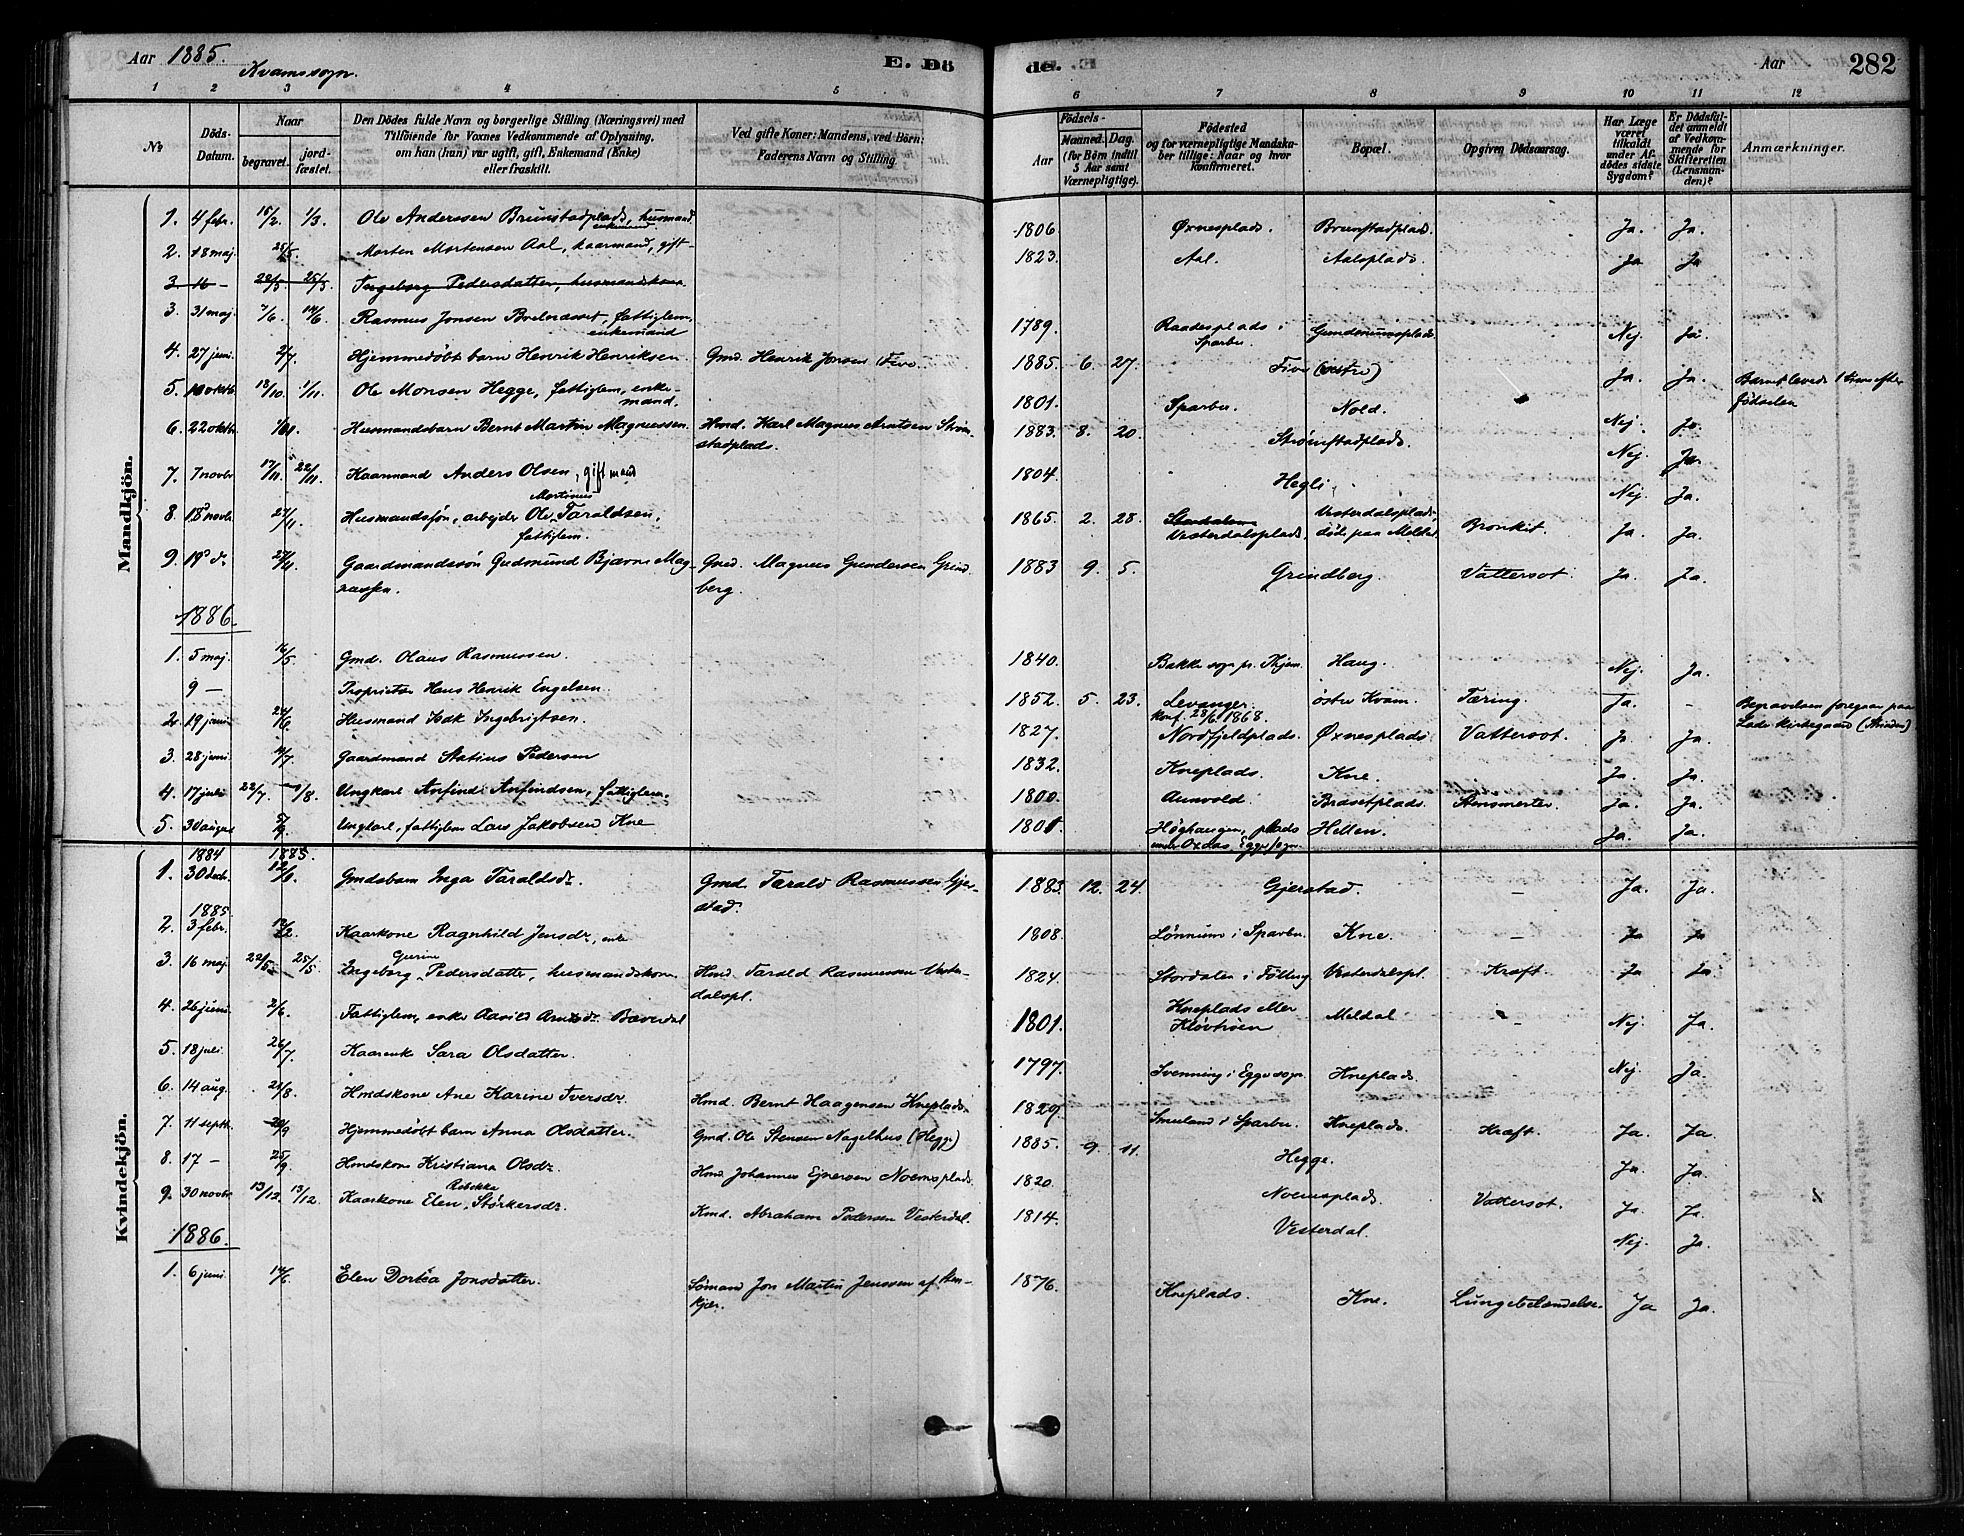 Aar 1885. E. Dö de. Aar 282
Kvams sogn.
1 2 3 4 5 6 7 8 9 10 11 12
No
Döds-Datum.
Naar
begravet. jordfæstet.
Den Dödes fulde Navn og borgerlige Stilling (Næringsvei) med
Tilföiende for Voxnes Vedkommende af Oplysning,
om han (hun) var ugift, gift, Enkemand (Enke)
eller fraskilt.
Ved gifte Koner: Mandens, ved Börn:
Faderens Navn og Stilling.
Födsels-
Aar Maaned. Dag.
(for Börn indtil
5 Aar samt
Værnepligtige).
Födested
og for værnepligtige Mandskaber tillige: Naar og hvor
konfirmeret.
Bopæl.
Opgiven Dödsaarsag.
Har Læge
været
tilkaldt
under Afdödes sidste
Sygdom?
Er Dödsfaldet anmeldt
af Vedkommende for
Skifteretten
(Lensmanden)?
Anmærkninger.
Mandkjön.
1. 4 febr. 15/2. 1/3. Ole Anderssen Brunstadplads, husmand, enkemand 1806 Øxnesplads. Brunstadplads. Ja. Ja.
2. 18 maj. 25/5. Morten Mortensen Aal, kaarmand, gift 1823. Aal. Aalsplads. Ja Ja
3 16 — 22/5 25/5. Ingeborg Pedersdatter, husmandskone
3. 31 maj. 7/6. 14/6. Rasmus Jonsen, fattiglem, enkemand 1789. Raadesplads i Sparbu. Nej. Ja.
4. 27 juni. 2/7. Hjemmedøbt barn Henrik Henriksen. Gmd. Henrik Jonsen Five. 1885. 6. 27. Five (østre) Ja. Ja. Barnet levede 1 time efter fødselen
5. 10 oktb. 18/10. 1/11. Ole Monsen Hegge, fattiglem, enkemand. 1801. Sparbu. Nej. Ja.
6. 22 oktb. Husmandsbarn Bernt Martin Magnussen. Hmd. Karl Magnus Arntsen Strømstadplads. 1883. 8. 20. Strømstadplads. Nej. Ja.
7. 7 novbr. 17/11. 22/11. Kaarmand Anders Olsen, gift mand 1804. Hegli. Nej. Ja.
8. 18 novb. 27/11. Husmandssøn, arbejder Ole Martinus Taraldsen, fattiglem. 1865. 2. 28. Vesterdalsplads. Vesterdalsplads, døde paa Bronkit. Ja. Ja.
9. 19 d. 27/11. Gaardmandssøn Gudmund Bjarne Magnussen. Gmd. Magnus Gundersen Grindberg. 1883 9. 5. Grindberg. Vattersot. Ja. Ja.
1886.
1. 5 maj. 16/5. Gmd. Olaus Rasmussen. 1840. Bakke sogn pr. Thjem. Haug. Nej. Ja.
9 — Proprietær Hans Henrik Engelsen. 1852. 5. 23. Levanger. konf. 28/6 1868. østre Kvam. Tæring. Ja. — Begravelsen foregaar paa Lade kirkegaard (Strinden)
2. 19 juni. 24/6. Husmand Isak Ingebrigtsen. 1827. Nordfjeldplads. Øxnesplads. Vattersot. Ja Ja.
3. 28 juni. Gaardmand Statius Pedersen 1832. Kneplads. Kne. Ja. Ja.
4. 17 juli 22/7. 1/8. Ungkarl Arfind Arfindsen, fattiglem. 1800. Aunvold. Brasetplads. Stensmerter. Ja. Ja.
5. 30 august 5/9. Ungkarl, fattiglem Lars Jakobsen Kne 1801. Høghaugen, plads under Oxaas, Egge sogn. Hellem. Ja. Ja.
Kvindekjön.
1884 1885.
1. 30 decb. Gmdsbarn Inga Taraldsdr. Gmd. Tarald Rasmussen Gjerstad. 1883. 12. 24. Gjerstad. — Ja. Ja.
1885.
2. 3 febr. Kaarkone Ragnhild Jensdr., enke 1808. Lønnum i Sparbu. Kne. — Ja Ja
3. 16 maj 22/5. 25/5. Ingeborg Gurine Pedersdatter, husmandskone. Hmd. Tarald Rasmussen Vesterdalspl. 1824. Stordalen i Følling Vesterdalspl. Kræft. Ja Ja.
4. 26 juni. 2/6. Fattiglem, enke Bæverdal 1801. Kneplads eller Kløvtrøen Meldal. — Nej. Ja.
5. 18 juli. 26/7. Kaarenke Sara Olsdatter. 1797. Svenning i Egge sogn. Kneplads. Nej. Ja.
6. 14 aug. 21/8. Hmdskone Ane Karine Iversdr. Hmd. Bernt Haagensen Kneplads. 1829. Smeland i Sparbu. Kneplads. Kræft. Ja. Ja.
7. 11 septb. 20/9. Hjemmedøbt barn Anna Olsdatter. Gmd. Ole Stensen Nagelhus (Hegge) 1885. 9. 11. Hegge. Ja. Ja.
8. 17 — 25/9. Hmdskone Kristiana Olsdr. Hmd. Johannes Ejnersen Noemsplads. 1820. Noemsplads. Vattersot. Ja. Ja.
9. 30 novbr. 13/12. 13/12. Kaarkone Elen Rebekka Størkersdr. Kmd. Abraham Pedersen Vesterdal. 1814. Vesterdal. Nej. Ja.
1886.
1. 6 juni. 14/6. Elen Dortea Jonsdatter. Sømand Jon Martin Jenssen af Stenkjær. 1876. Kneplads. Kne. Lungebetændelse. Ja Ja.